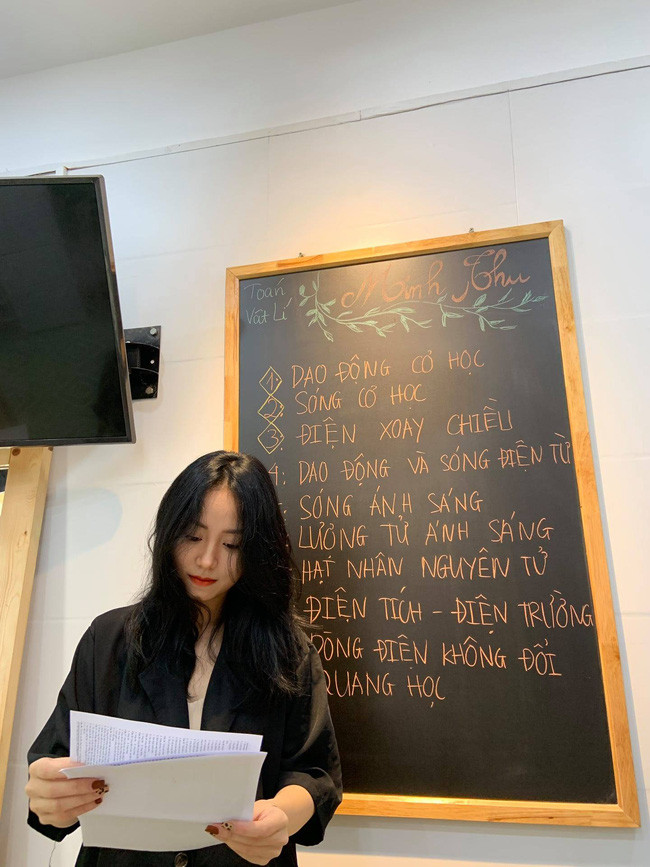 Toán
Vật Lí
Minh Thu
1. DAO ĐỘNG CƠ HỌC
2. SÓNG CƠ HỌC
3. ĐIỆN XOAY CHIỀU
4: DAO ĐỘNG VÀ SÓNG ĐIỆN TỪ
SÓNG ÁNH SÁNG
LƯỢNG TỬ ÁNH SÁNG
HẠT NHÂN NGUYÊN TỬ
ĐIỆN TÍCH - ĐIỆN TRƯỜNG
DÒNG ĐIỆN KHÔNG ĐỔI
QUANG HỌC